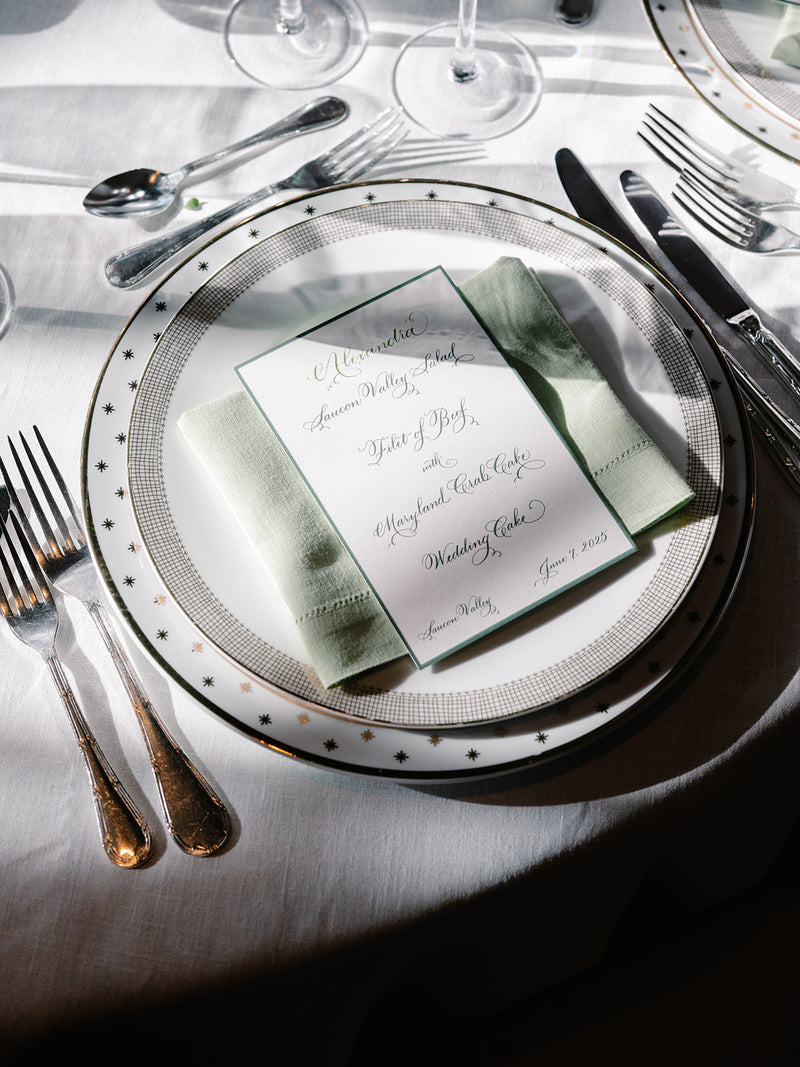 Alexandra
Saucon Valley Salad
Filet of Beef
with
Maryland Crab Cake
Wedding Cake
Saucon Valley
June 7, 2025